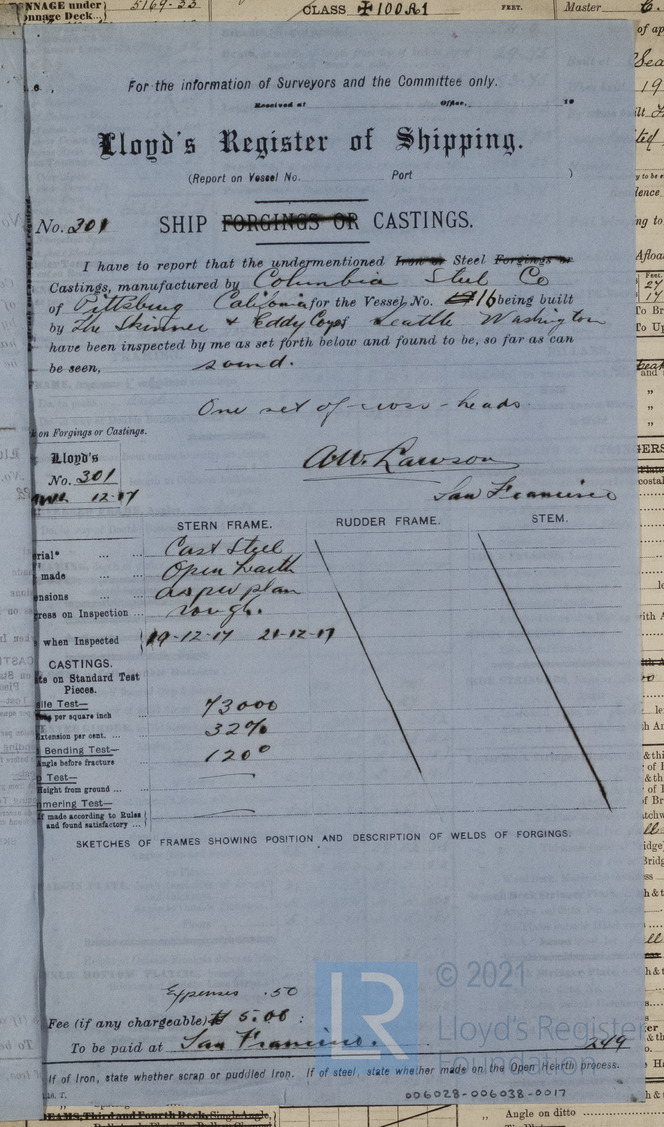 NNAGE under
onnage Deck..
5169-33
CLASS ✠ 100A1
FEET.
Master
For the information of Surveyors and the Committee only.
Received at Office, 19
Lloyd's Register of Shipping.
(Report on Vessel No. Port )
No. 301 SHIP FORGINGS OR CASTINGS.
I have to report that the undermentioned Iron or Steel Forgings or
Castings, manufactured by Columbia Steel Co
of Pittsburg California for the Vessel, No. 16 being built
by The Skinner & Eddy Corp of Seattle Washington
have been inspected by me as set forth below and found to be, so far as can
be seen, sound.
One set of heads.
on Forgings or Castings.
Lloyd's
No. 301
12-17
A.W. Lawson
San Francisco
STERN FRAME. RUDDER FRAME. STEM.
erial* ... ... Cast Steel
made ... Open hearth
ensions ... as per plan
gress on Inspection ... rough.
when Inspected 19-12-17 21-12-17
CASTINGS.
ts on Standard Test
Pieces.
ile Test—
per square inch ... 73000
Extension per cent. ... 32%
Bending Test—
Angle before fracture ... 120°
p Test—
Height from ground ...
mmering Test—
If made according to Rules
and found satisfactory ...
SKETCHES OF FRAMES SHOWING POSITION AND DESCRIPTION OF WELDS OF FORGINGS.
Expenses .50
Fee (if any chargeable) $ 5.00 :
To be paid at San Francisco.
349
If of Iron, state whether scrap or puddled Iron. If of steel, state whether made on the Open Hearth process.
006028-006038-0017
LR © 2021
Lloyd's Register
Foundation
EAMS, Third and Fourth Deck, Single Angle,
Angle on ditto